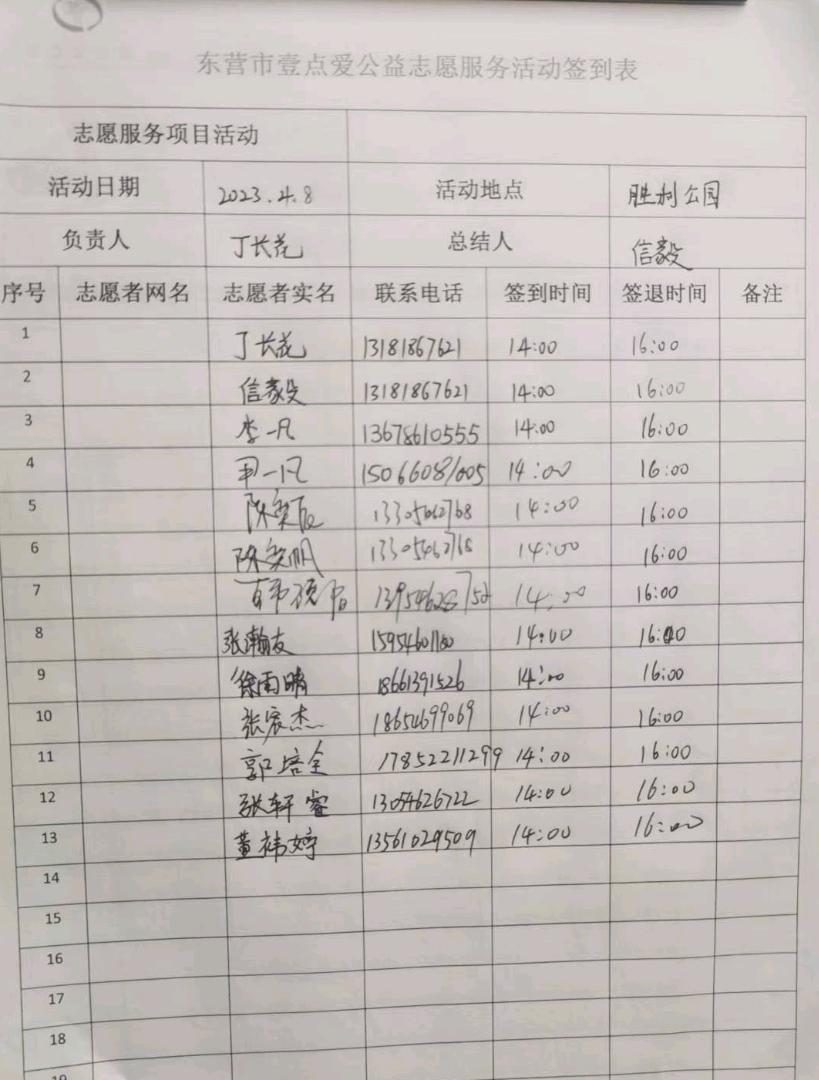 东营市壹点爱公益志愿服务活动签到表
志愿服务项目活动
活动日期 2023.4.8 活动地点 胜利公园
负责人 丁长花 总结人 信毅
序号 志愿者网名 志愿者实名 联系电话 签到时间 签退时间 备注
1 丁长花 13181867621 14:00 16:00
2 信毅 13181867621 14:00 16:00
3 李一凡 13678610555 14:00 16:00
4 尹一凡 15066081005 14:00 16:00
5 14:00 16:00
6 13305462768 14:00 16:00
7 14:00 16:00
8 张瀚友 15954601180 14:00 16:00
9 徐雨晴 18661391526 14:00 16:00
10 张宸杰 18654699069 14:00 16:00
11 郭培全 17852211299 14:00 16:00
12 张轩睿 13054626722 14:00 16:00
13 董祎婷 13561029509 14:00 16:00
14
15
16
17
18
19